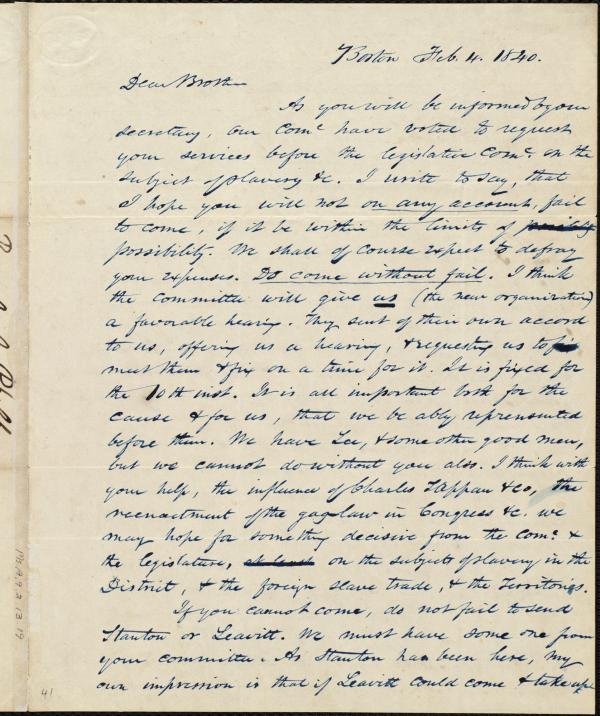 Boston Feb. 4. 1840.
Dear Brother
As you will be informed by our
secretary, our Comc have voted to request
your services before the legislative Comc. on the
subject of slavery &c. I write to say, that
I hope you will not on any account, fail
to come, if it be within the limits of possibly
possibility. We shall of course expect to defray
your expenses. Do come without fail. I think
the committee will give us (the new organization)
a favorable hearing. They sent of their own accord
to us, offering us a hearing, & requesting us to fix
meet them & fix on a time for it. It is fixed for
the 10th inst. It is all important both for the
cause & for us, that we be ably reprensented
before them. We have Lee, & some other good men,
but we cannot do without you also. I think with
your help, the influence of Charles Tappan & co, the
reenactment of the gag law in Congress &c. we
may hope for something decisive from the Comc. &
the legislature, at least on the subject of slavery in the
District, & the foreign slave trade, & the Territories.
If you cannot come, do not fail to send
Stanton or Leavitt. We must have some one from
your committee. As Stanton has been here, my
own impression is that if Leavitt could come & take up
41
Ms.A.9.2.13.19